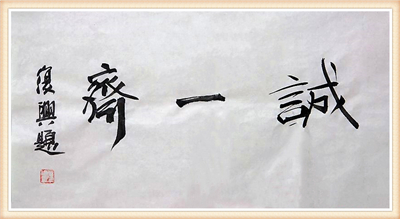 誠一齋
復興題